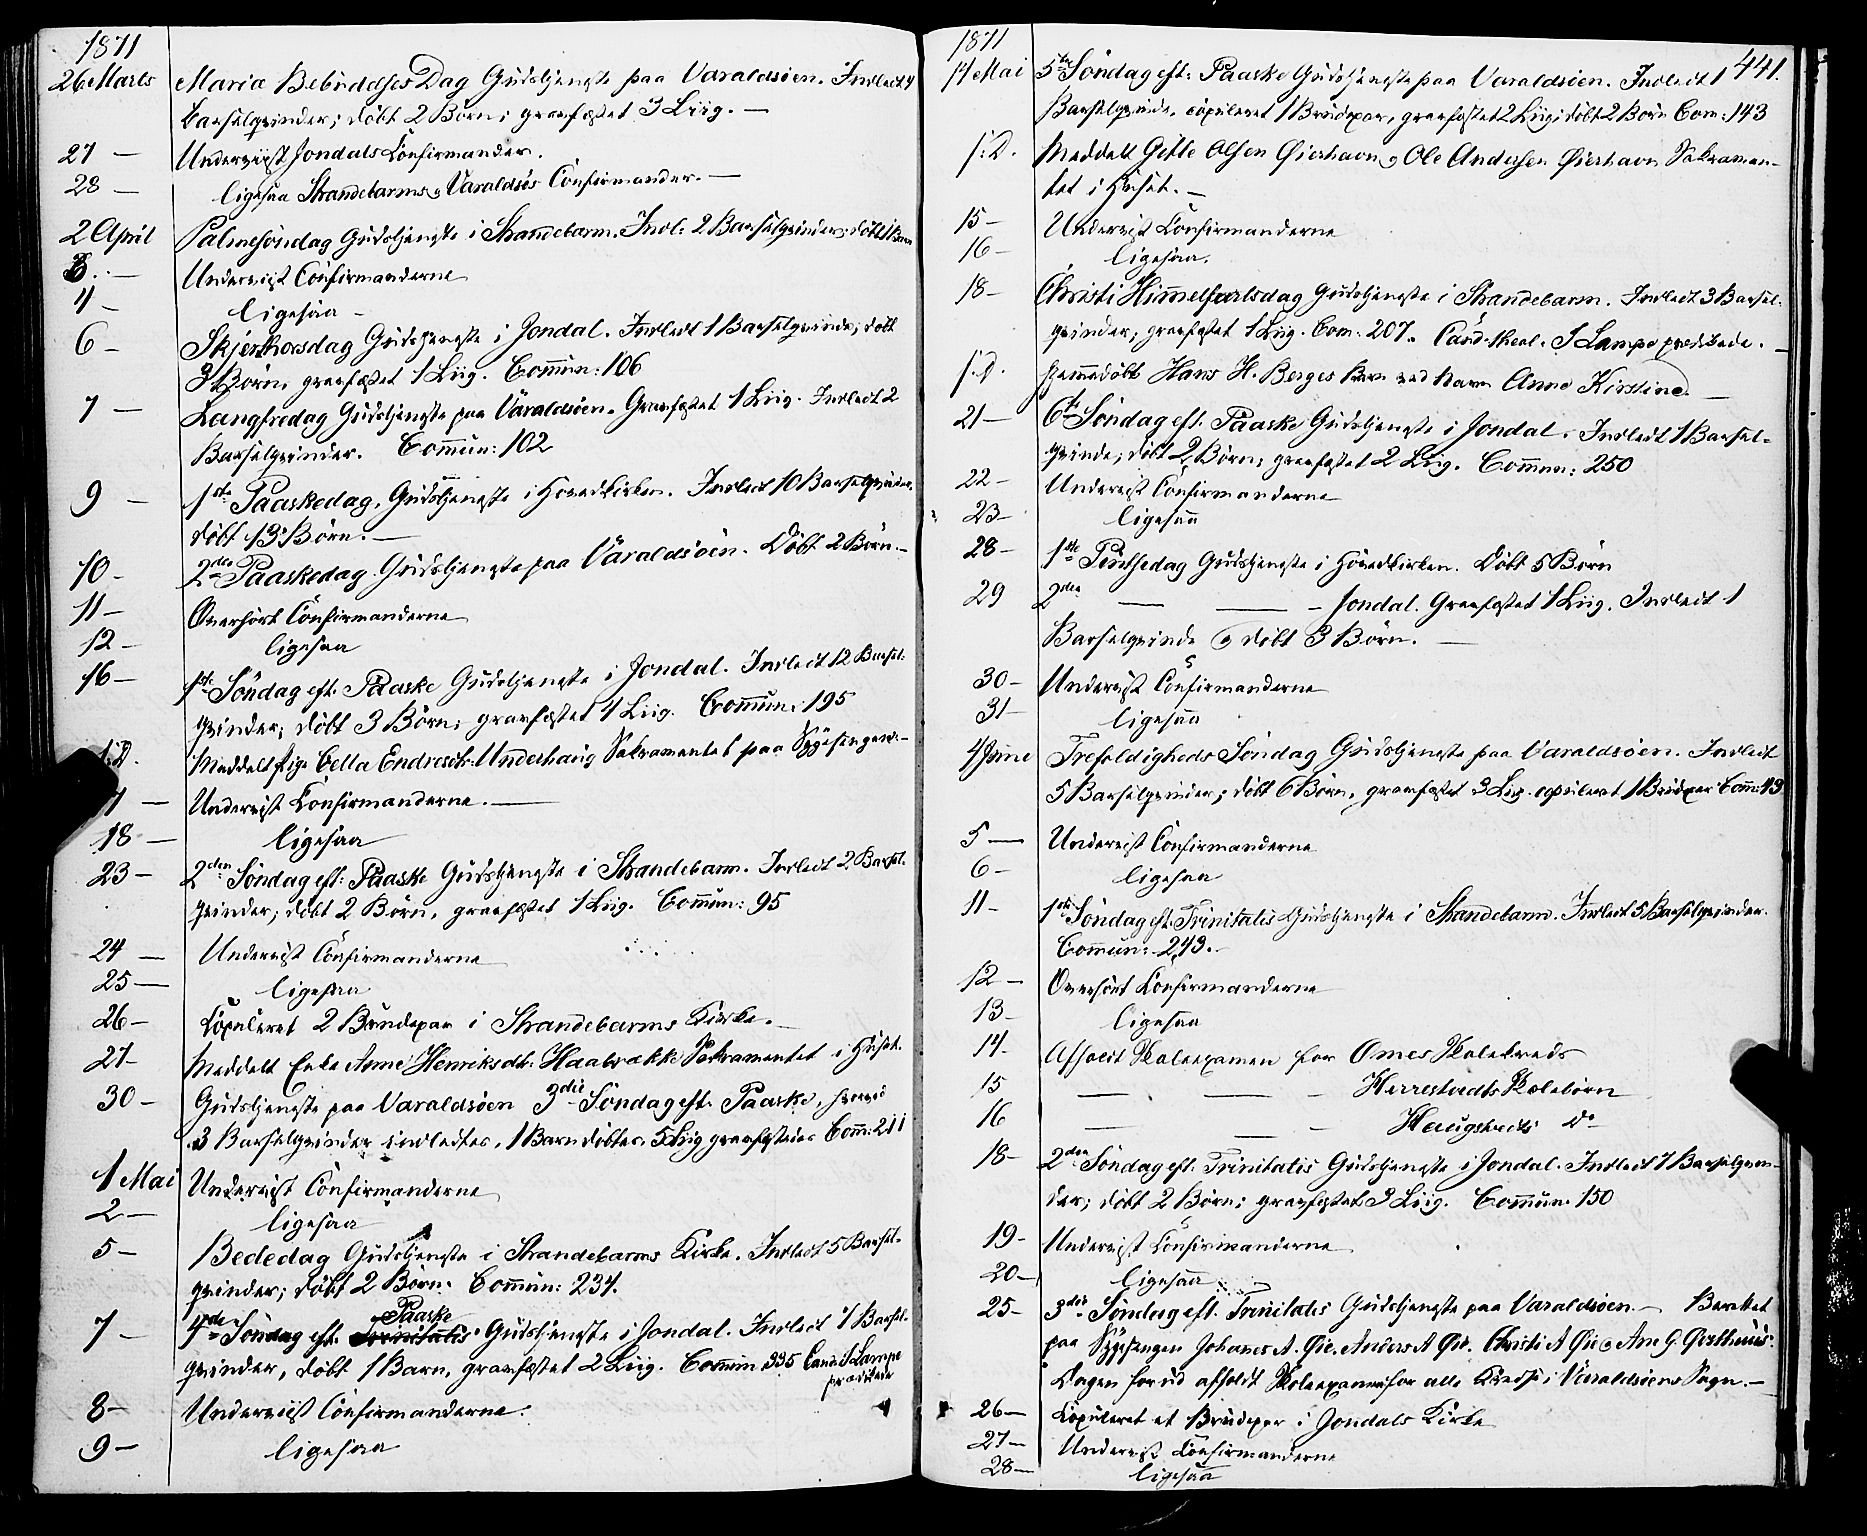 1871
26 Marts Maria Bebudelses Dag Gudstjeneste paa Varaldsöen. Indledt 4
Barselqvinder; döbt 2 Börn; gravfæstet 3 Liig. —
27 — Underviist Jondals Confirmander.
28 — ligesaa Strandebarms og Varaldsös Confirmander. —
2 April Palmesöndag Gudstjeneste i Strandebarm. Indl: 2 Barselqvinder; döbt 1 Barn
3 — Underviist Confirmanderne
4 — ligesaa —
6 — Skjerthorsdag Gudstjeneste i Jondal. Indledt 1 Barselqvinde; döbt
3 Börn, gravfæstet 1 Liig. Commun: 106
7 — Langfredag Gudstjeneste paa Varaldsöen. Gravfæstet 1 Liig. Indledt 2
Barselqvinder. Commun: 102
9 — 1ste Paaskedag, Gudstjeneste i Hovedkirken. Indledt 10 Barselqvinder,
döbt 13 Börn. —
10 — 2den Paaskedag Gudstjeneste paa Varaldsöen. Döbt 2 Börn. —
11 — Overhört Confirmanderne
12 — ligesaa
16 — 1ste Söndag eft. Paaske Gudstjeneste i Jondal. Indledt 12 Barsel-
qvinder; döbt 3 Börn; gravfæstet 4 Liig. Commun: 195
s: D. Meddelt Pige Cella Endresdt: Underhaug Sakramentet paa Sygesengen. —
17 — Underviist Confirmanderne. —
18 — ligesaa
23 — 2den Söndag eft: Paaske Gudstjeneste i Strandebarm. Indledt 2 Barsel-
qvinder; döbt 2 Börn, gravfæstet 1 Liig. Commun: 95
24 — Underviist Confirmanderne
25 — ligesaa
26 — Copuleret 2 Brudepar i Strandebarms Kirke. —
27 — Meddelt Enke Anne Henriksdt: Haabrække Sakramentet i Huset.
30 — Gudstjeneste paa Varaldsöen 3die Söndag eft. Paaske, hvorved
3 Barselqvinder indledtes, 1 Barn döbtes, 5 Liig gravfæstedes Comm: 211
1 Mai Underviist Confirmanderne
2 — ligesaa
5 — Bededag Gudstjeneste i Strandebarms Kirke. Indledt 5 Barsel-
qvinder; döbt 2 Börn: Commun: 234.
Paaske
7 — 4de Söndag eft. Trinitatis Gudstjeneste i Jondal. Indledt 4 Barsel-
qvinder, döbt 1 Barn, gravfæstet 2 Liig. Commun 335 Cand: S Lampe
prædikede
8 — Underviist Confirmanderne.
9 — ligesaa
1871
441.
14 Mai 5te Söndag eft: Paaske Gudstjeneste paa Varaldsöen. Indledt 1
Barselqvinde, copuleret 1 Brudepar, gravfæstet 2 Liig; döbt 2 Börn Com: 143
s: D. Meddelt Gitle Olsen Öierhavn og Ole Andersen Öierhavn Sakramen-
tet i Huset. —
15 — Underviist Confirmanderne
16 — ligesaa.
18 — Christi Himmelfartsdag Gudstjeneste i Strandebarm. Indledt 3 Barsel-
qvinder; gravfæstet 1 Liig. Com: 207. Cand. theol. S Lampe prædikede.
s: D. Hjemmedöbt Hans H. Berges Barn ved Navn Anne Kirstine. —
21 — 6te Söndag eft. Paaske Gudstjeneste i Jondal. Indledt 1 Barsel-
qvinde; döbt 2 Börn; gravfæstet 2 Liig. Commun: 250
22 — Underviist Confirmanderne
23 — ligesaa
28 — 1ste Pintsedag Gudstjeneste i Hovedkirken. Döbt 5 Börn
29 2den — — — Jondal. Gravfæstet 1 Liig. Indledt 1
Barselqvinde og döbt 3 Börn. —
30 — Underviist Confirmanderne
31 — ligesaa
4 Junie Trefoldigheds Söndag Gudstjeneste paa Varaldsöen. Indledt
5 Barselqvinder; döbt 6 Börn, gravfæstet 3 Liig. copuleret 1 Brudepar Comm: 43
5 — Underviist Confirmanderne
6 — ligesaa
11 — 1ste Söndag eft. Trinitatis Gudstjeneste i Strandebarm. Indledt 5 Barselqvinder.
Commun: 243. —
12 — Overhört Confirmanderne
13 — ligesaa
14 — Afholdt Skoleexamen for Omes Skolekreds
15 — — — Herrestadts Skolebörn
16 — — — Haugskreds Do
18 — 2den Söndag eft. Trinitatis Gudstjeneste i Jondal. Indledt 7 Barselqvin-
der; döbt 2 Börn; gravfæstet 3 Liig. Commun: 150
19 — Underviist Confirmanderne
20 — ligesaa
25 — 3die Söndag eft. Trinitatis Gudstjeneste paa Varaldsöen. — Berettet
paa Sygesengen Johannes A. Öie, Anders A Öie, Christi A Öie og Ane G.
Dagen forud afholdt Skoleexamen for alle Kredse i Varaldsöens Sogn. —
26 — Copuleret et Brudepar i Jondals Kirke
27 — Underviist Confirmanderne
28 — ligesaa